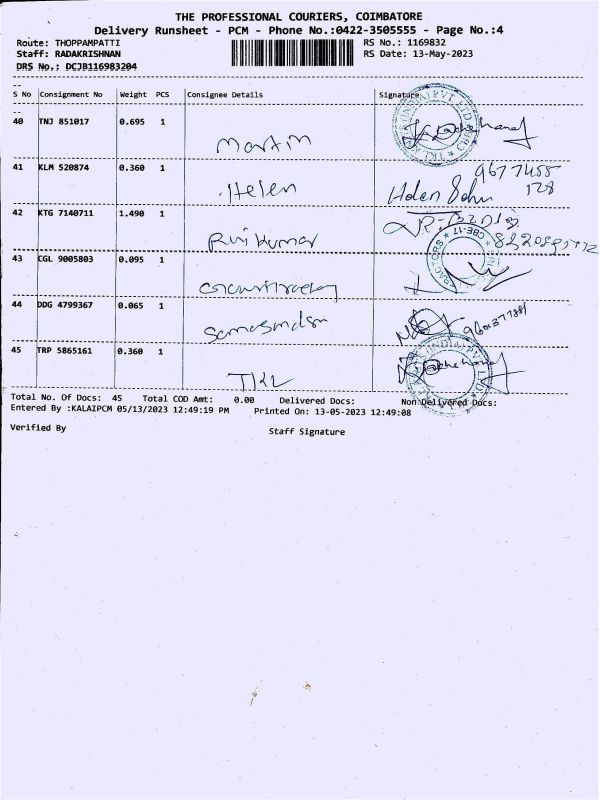 THE PROFESSIONAL COURIERS, COIMBATORE
Delivery Runsheet - PCM - Phone No.:0422-3505555 - Page No.:4
Route: THOPPAMPATTI RS No.: 1169832
Staff: RADAKRISHNAN RS Date: 13-May-2023
DRS No.: DCJB116983204
S No Consignment No Weight PCS Consignee Details Signature
40 TNJ 851017 0.695 1
Martin
41 KLM 520874 0.360 1
Helen Helen 9677455
128
42 KTG 7140711 1.490 1
43 CGL 9005803 0.095 1
44 DDG 4799367 0.065 1
45 TRP 5865161 0.360 1
TKL
Total No. Of Docs: 45 Total COD Amt: 0.00 Delivered Docs: Non Delivered Docs:
Entered By :KALAIPCM 05/13/2023 12:49:19 PM Printed On: 13-05-2023 12:49:08
Verified By Staff Signature